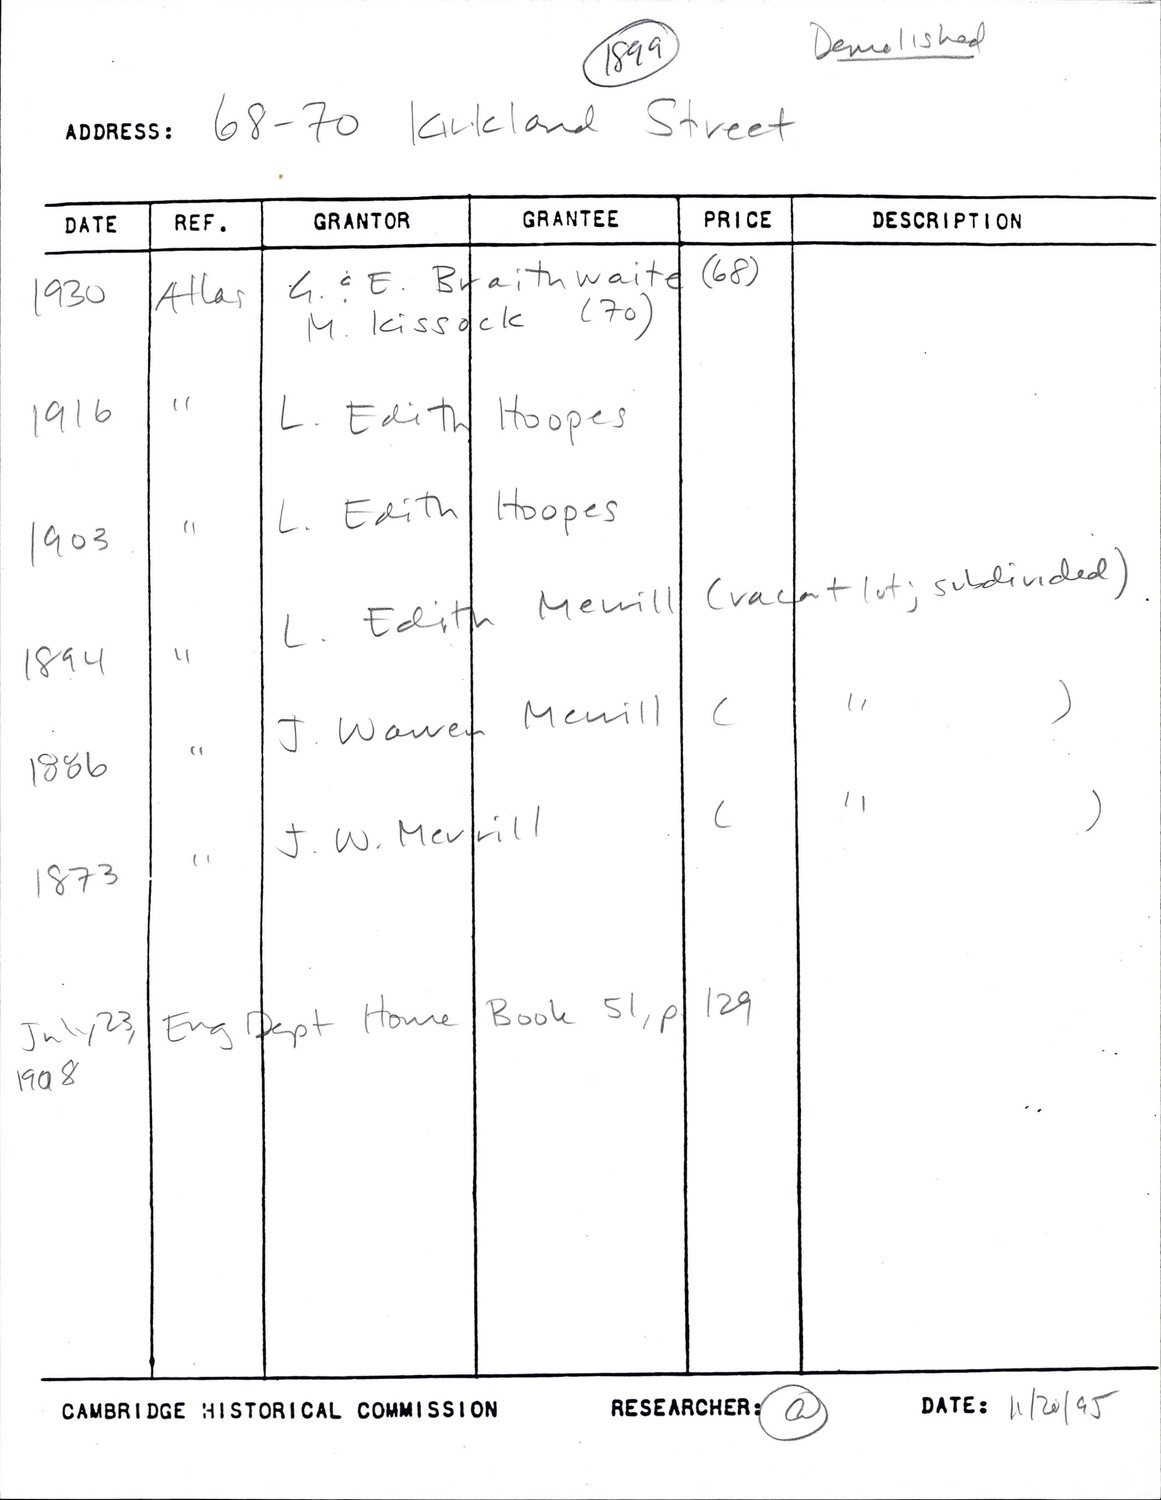 1899
Demolished
ADDRESS: 68-70 Kirkland Street
DATE REF. GRANTOR GRANTEE PRICE DESCRIPTION
1930 Atlas G. & E. Braithwaite (68)
M. Kissock (70)
1916 " L. Edith Hoopes
1903 " L. Edith Hoopes
1894 " L. Edith Merrill (vacant lot; subdivided)
1886 " J. Warren Merrill ( " )
1873 " J. W. Merrill ( " )
July 23, Eng Dept House Book 51, p 129
1908
CAMBRIDGE HISTORICAL COMMISSION RESEARCHER: DATE: 11/20/95